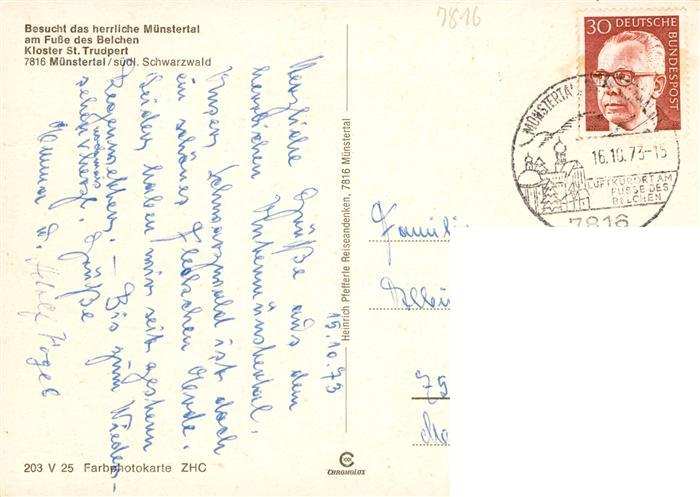 Besucht das herrliche Münstertal
am Fuße des Belchen
Kloster St. Trudpert
7816 Münstertal/südl. Schwarzwald
7816
30 DEUTSCHE
BUNDESPOST
16.10.73-15
LUFTKURORT AM
FUSSE DES
BELCHEN
7816
15.10.73
Herzliche Grüße aus dem
herrlichen Untermünstertal.
Unser Schwarzwald ist doch
ein schönes Fleckchen Erde.
Leider haben wir seit gestern
Regenwetter. – Bis zum Wieder-
sehen herzl. Grüße
nochmals
Hanna u. Adolf Vogel
Heinrich Pfefferle Reiseandenken, 7816 Münstertal
Familie
75
203 V 25 Farbphotokarte ZHC
CHROMOLUX